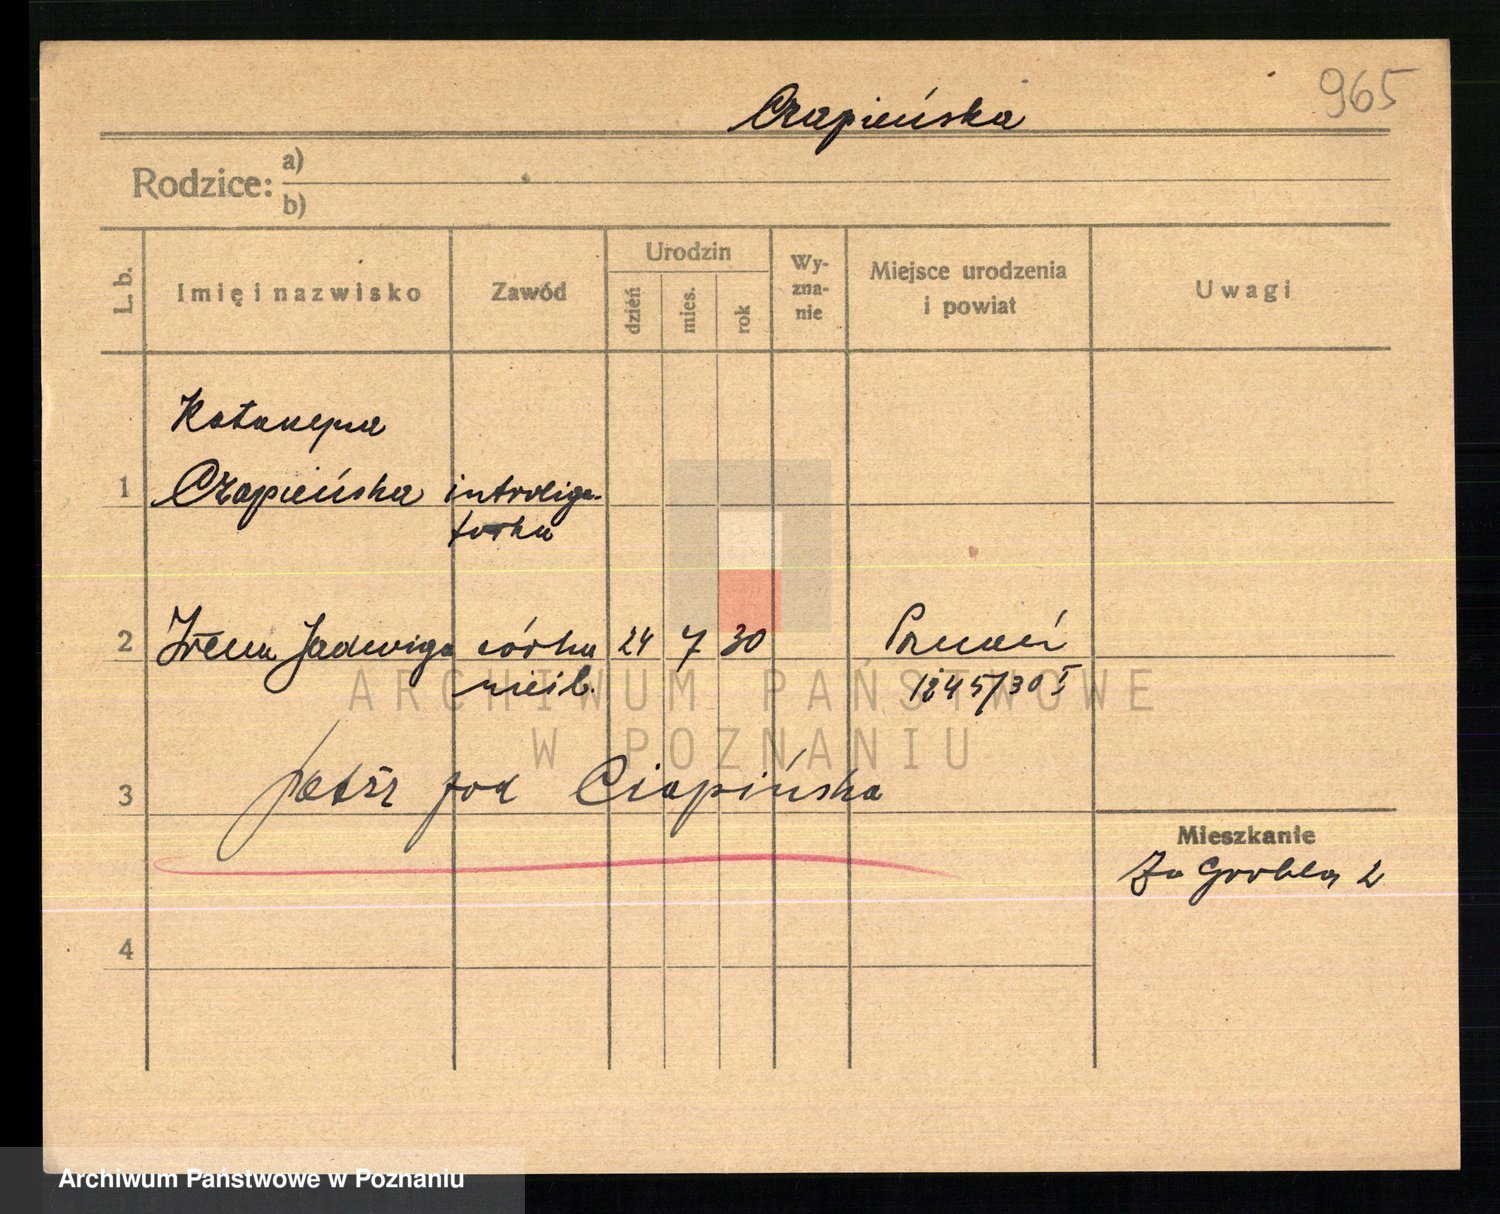 965
Czapieńska
Rodzice: a)
b)
L. b.
Imię i nazwisko
Zawód
Urodzin
dzień
mies.
rok
Wy-
zna-
nie
Miejsce urodzenia
i powiat
Uwagi
Katarzyna
1 Czapieńska introliga-
torka
2 Irena Jadwiga córka 24 7 30 Poznań
nieśl. 1245/30 I
ARCHIWUM PAŃSTWOWE
W POZNANIU
3 patrz pod Ciapińska
Mieszkanie
Za Groblą 2
4
Archiwum Państwowe w Poznaniu